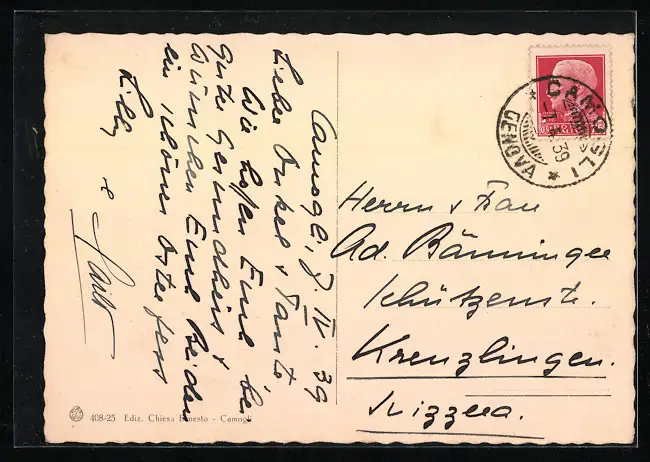 Camogli, 7 IV. 39
Liebe Onkel + Tante
Wir hoffen Eure
gute Gesundheit +
wünschen Euch Beiden
ein schönes Osterfest
Lilly
e
Herrn + Frau
Ad. Bänninger
Schützenstr.
Kreuzlingen.
Svizzera.
CAMOGLI
39
GENOVA
408-25 Ediz. Chiesa Ernesto - Camogli